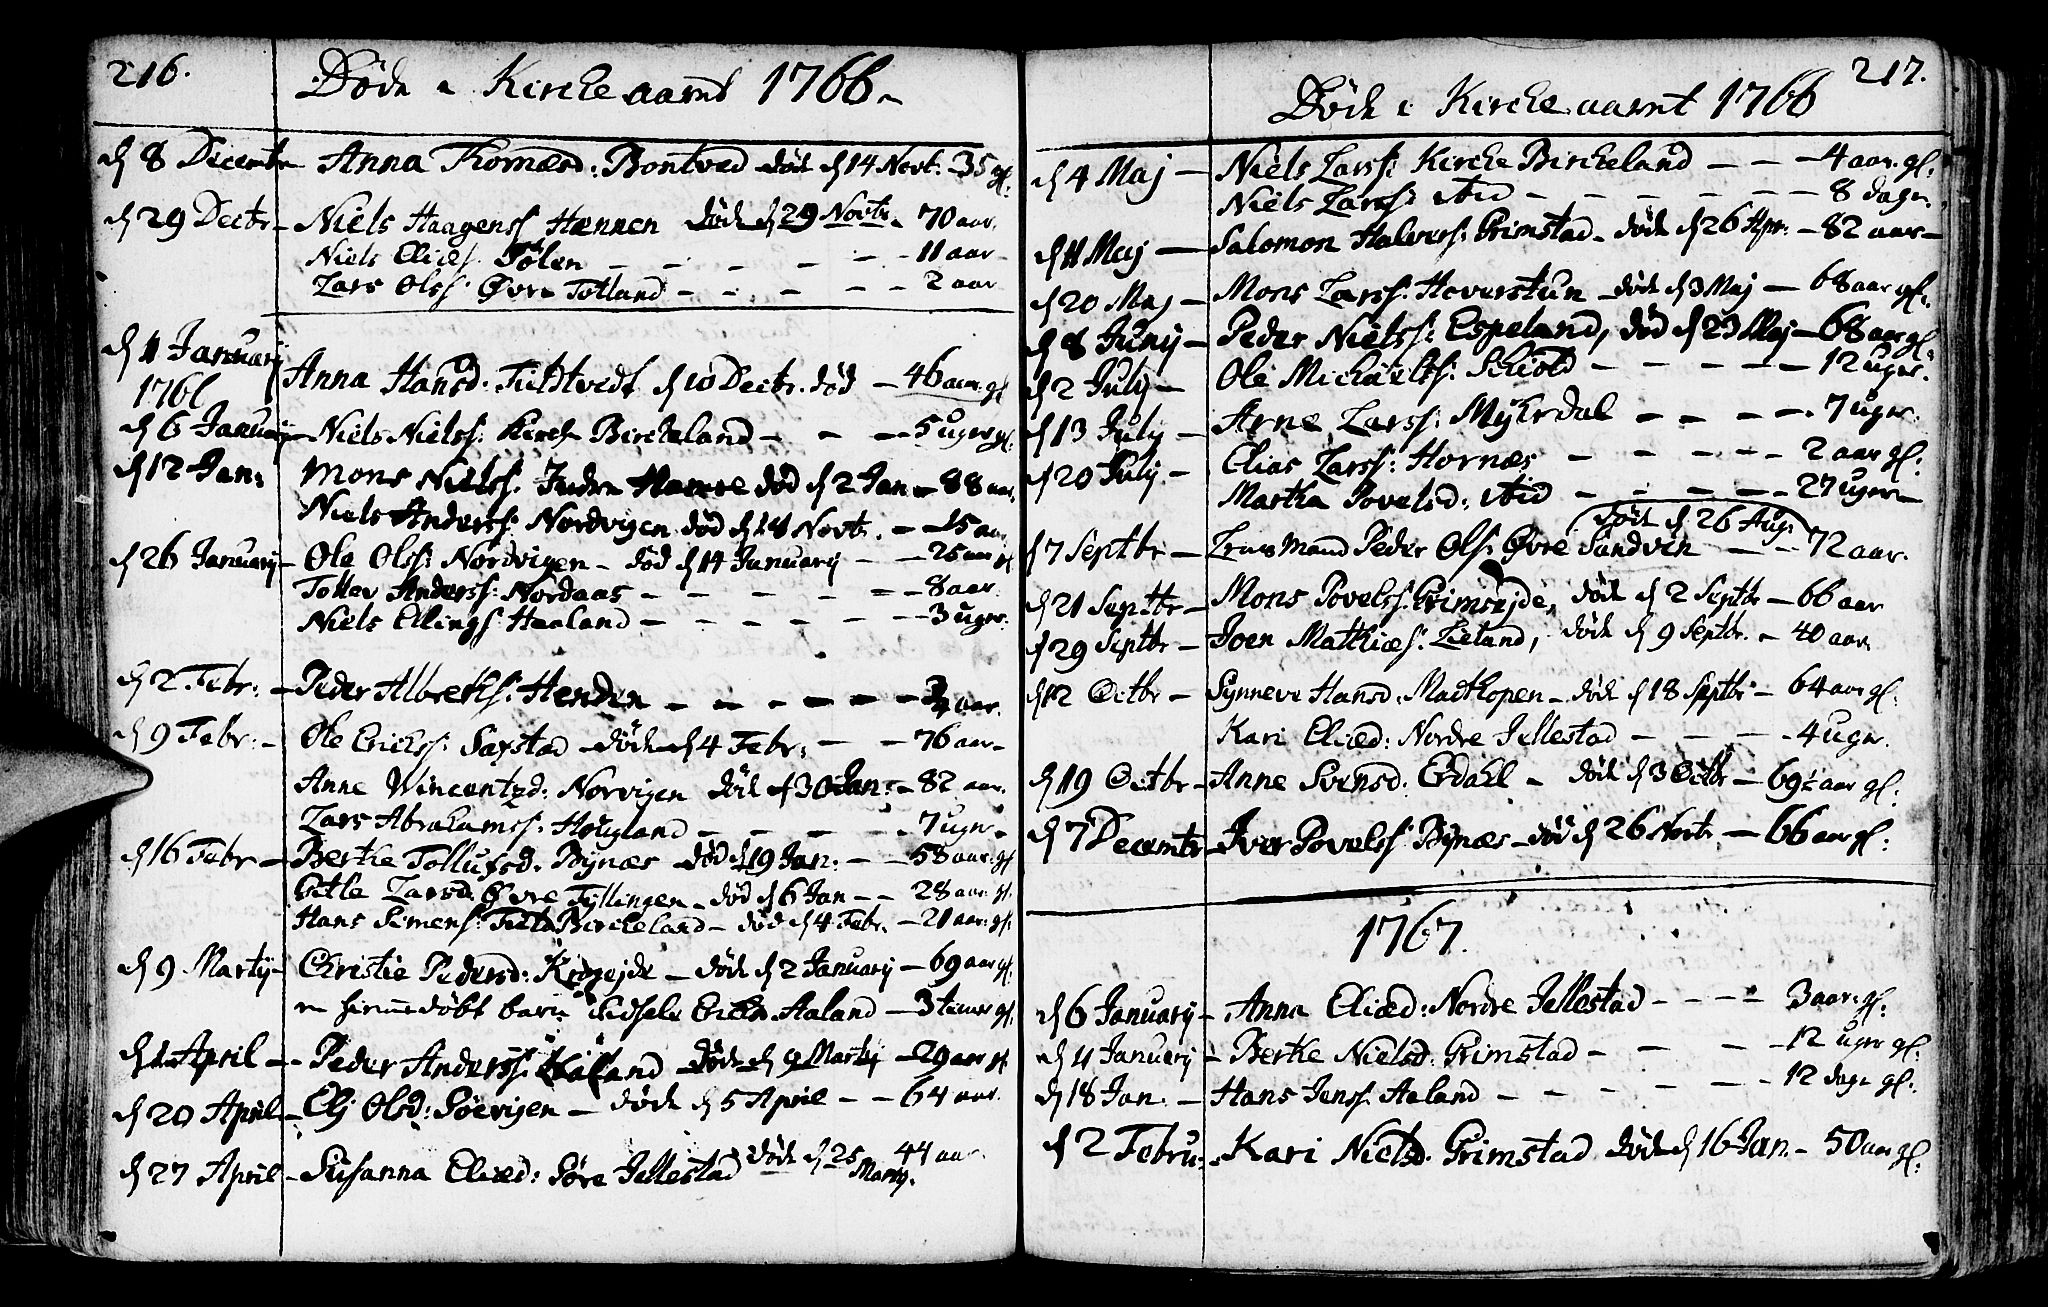 216.
Døde i Kircke aaret 1766
d 8 Decembr Anna Thomæsd: Bontved død d 14 Novb: 35 gl:
d 29 Decbr Niels Haagenss Hannen døde d 29 Novbr. 70 aar.
Niels Eliæs: Tølen 11 aar
Lars Olss: Øvre Totland 2 aar
d 1 January
1766 Anna Hansd: Tvedt d 10 Decbr. død 46 aar. gl
d 6 January Niels Nielss: Kirch Birckeland 5 uger gl:
d 12 Jan: Mons Nielss: Indre død d 2 Jan 88 aar.
Niels Anderss: Nordvigen død d 18 Novbr. 15 aar
d 26 January Ole Olss: Nordvigen død d 14 January 25 aar gl
Tollev Anderss: Nordaas 8 aar.
Niels Ellings Haaland 3 uger.
d 2 Febr: Peder Albrekts: Henden 3/4 aar.
d 9 Febr: Ole Erickss: Saxstad døde d 4 Febr: 76 aar
Anne Wincentzd: Norvigen død d 30 Jan: 82 aar.
Lars Abrahamss: Hougland 7 uger
d 16 Febr Berthe Tollufsd. Bynæs død d 19 Jan: 58 aar. gl
Larsd: Øvre Tyllingen død d 6 Jan 28 aar. gl.
Hans Simens: Birckeland død d 4 Febr. 21 aar. gl:
d 9 Martij Christie Pedersd: døde d 2 January 69 aar gl:
en hiemmedøbt barn Sidsele Aaland 3 timer gl:
d 1 April Peder Anderss: døde d 9 Martij 29 aar gl
d 20 April Elj Olsd: Søevigen døde d 5 April 64 aar.
d 27 April Susanna Eliæd: Søre Jellestad døde d 25 Martij. 44 aar
217.
Døde i Kircke aaret 1766
d 4 Maj Niels Larss: Kircke Birckeland 4 aar. gl:
Niels Larss: ibid 8 dage.
d 11 Maj Salomon Halvorss: Grimstad døde d 26 Apr: 82 aar
d 20 Maj Mons Larss: Hoverstun død d 3 Maj 68 aar gl:
d 8 Junij Peder Nielss: Espeland, død d 23 Maj 68 aar gl:
d 2 July Ole Michaelss: Schiold 12 uger.
d 13 July Arne Larss: Mykedal 7 uger.
d 20 July Elias Larss: Hornæs 2 aar gl:
Martha Povelsd: ibid 27 uger
døde d 26 Aug:
d 7 Septbr Mand Peder Ols: Øvre Sandvin 72 aar.
d 21 Septbr Mons Povelss: Grimsejde, døde d 2 Septbr 66 aar
d 29 Septbr Joen Mathiæs: Lieland, døde d 9 Septbr. 40 aar.
d 12 Octbr Synneve Hansd: Madthopen døde d 18 Septbr 64 aar gl:
Kari Eliæd: Nordre Jellestad 4 uger.
d 19 Octbr Anne Svensd: Erdahl døde d 3 Octbr 69½ aar gl:
d 7 Decembr Iver Povelss: Bynæs død d 26 Novbr 66 aar gl:
1767.
d 6 January Anna Eliæd: Nordre Jellestad 3 aar. gl:
d 11 January Berthe Nielsd: Grimstad 12 uger gl:
d 18 Jan. Hans Jenss: Aaland 12 dage gl:
d 2 Febru: Kari Nielsd. Grimstad døde d 16 Jan. 50 aar gl: